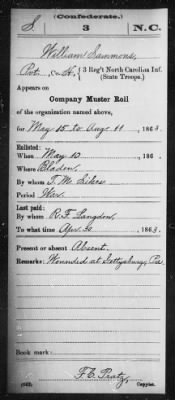 (Confederate.)
S 3 N.C.
William Sammons
Pvt., Co. H, 3 Reg't North Carolina Inf.
(State Troops.)
Appears on
Company Muster Roll
of the organization named above,
for May 15 to Aug. 11, 1863.
Enlisted:
When May 10, 186 .
Where Bladen
By whom T. M. Sikes
Period War
Last paid:
By whom R. F. Langdon,
To what time Apr. 30, 1863.
Present or absent Absent.
Remarks: Wounded at Gettysburg, Pa
Book mark:
(642) Copyist.